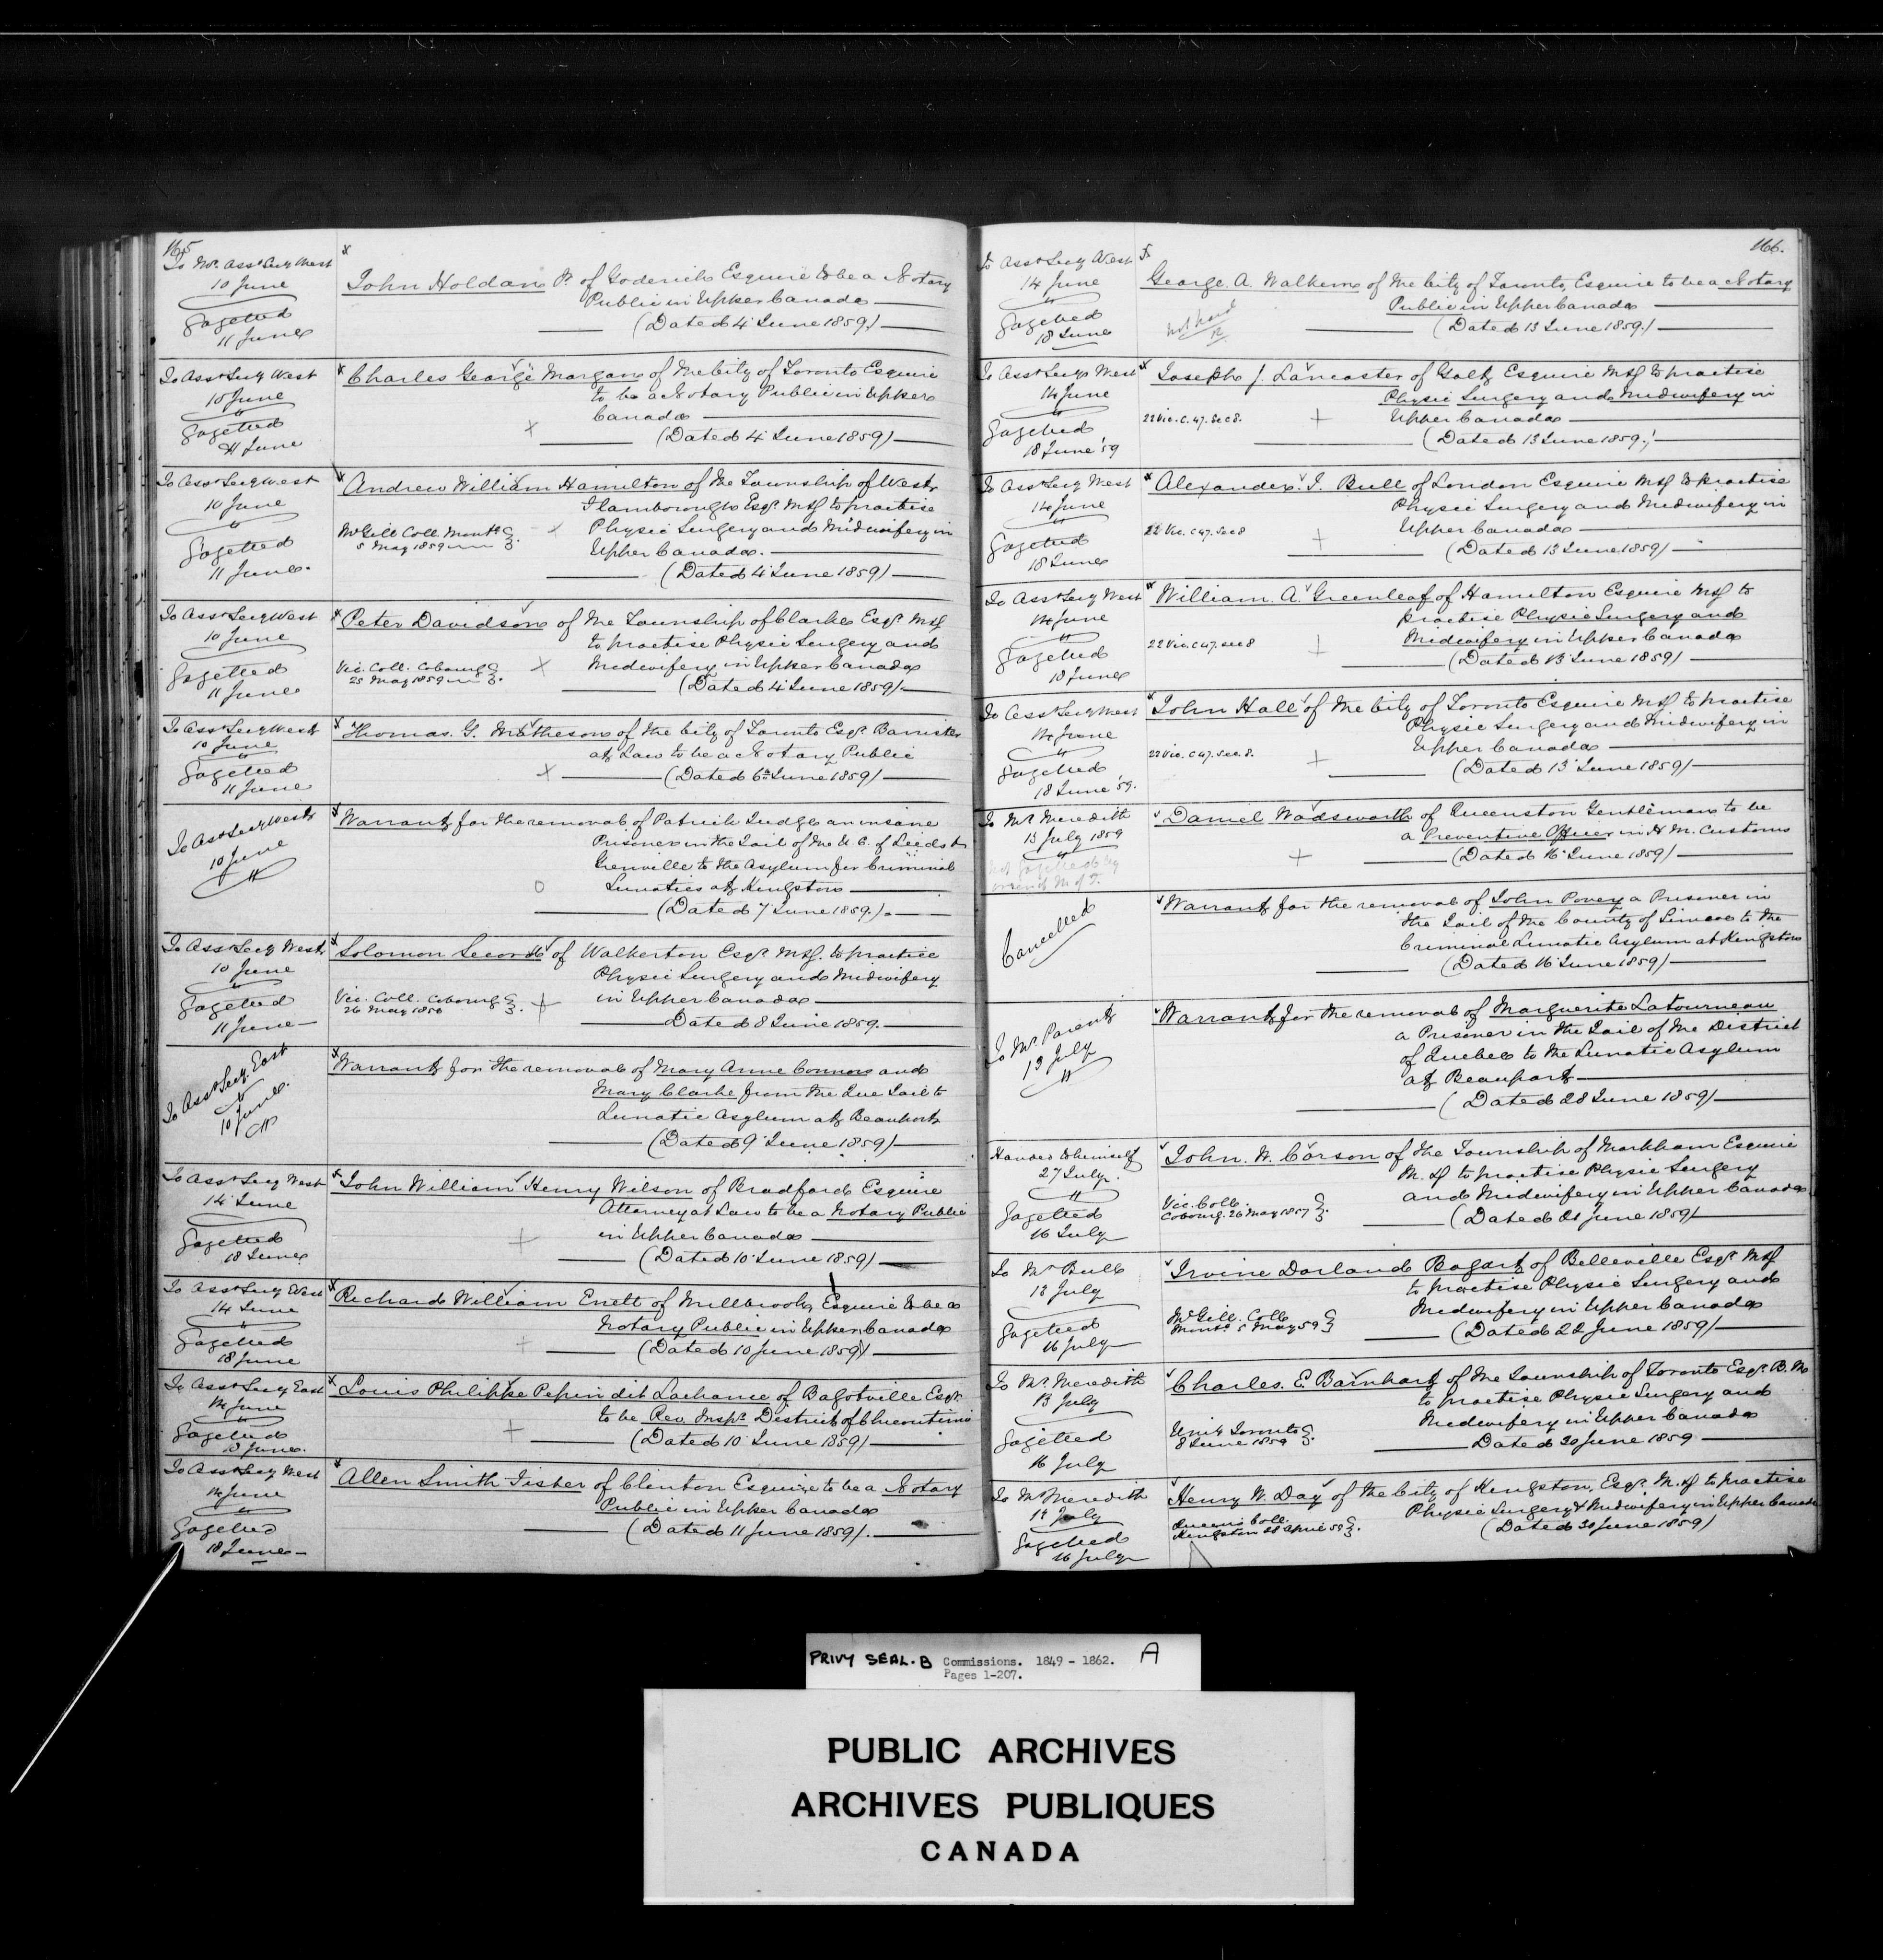 165
To Mr. Asst Secy West
10 June
Gazetted
11 June
John Holdan Jr. of Goderich Esquire to be a Notary
Public in Upper Canada
(Dated 4 June 1859)
To Asst Secy West
10 June
Gazetted
11 June
Charles George Morgan of the City of Toronto Esquire
to be a Notary Public in Upper
Canada
(Dated 4 June 1859)
To Asst Secy West
10 June
Gazetted
11 June
Andrew William Hamilton of the Township of West
Flamborough Esqr. M.D. to practise
McGill Coll. Montl
5 May 1859
Physic Surgery and Midwifery in
Upper Canada.
(Dated 4 June 1859)
To Asst Secy West
10 June
Gazetted
11 June
Peter Davidson of the Township of Clarke Esqr. M.D.
to practise Physic Surgery and
Vic. Coll. Cobourg
25 May 1859
Midwifery in Upper Canada
(Dated 4 June 1859)
To Asst Secy West
10 June
Gazetted
11 June
Thomas. G. Matheson of the City of Toronto Esqr. Barrister
at Law to be a Notary Public
(Dated 6th June 1859)
To Asst Secy West
10 June
Warrant for the removal of Patrick Judge an insane
Prisoner in the Jail of the U. C. of Leeds &
Grenville to the Asylum for Criminal
Lunatics at Kingston
(Dated 7 June 1859.)
To Asst Secy West
10 June
Gazetted
11 June
Solomon Secord of Walkerton Esqr. M.D. to practice
Physic Surgery and Midwifery
Vic. Coll. Cobourg
26 May 1858
in Upper Canada
Dated 8 June 1859.
To Asst Secy East
10 June
Warrant for the removal of Mary Anne Connors and
Mary Clarke from the Que Jail to
Lunatic Asylum at Beauport
(Dated 9 June 1859)
To Asst Secy West
14 June
Gazetted
18 June
John William Henry Wilson of Bradford Esquire
Attorney at Law to be a Notary Public
in Upper Canada
(Dated 10 June 1859)
To Asst Secy West
14 June
Gazetted
18 June
Richard William Erett of Millbrook, Esquire to be a
Notary Public in Upper Canada
(Dated 10 June 1859)
To Asst Secy East
14 June
Gazetted
18 June
Louis Philippe Pepin dit Lachance of Bagotville Esqr.
to be Rev. Inspr. District of Chicoutimi
(Dated 10 June 1859)
To Asst Secy West
14 June
Gazetted
18 June
Allen Smith Fisher of Clinton Esquire to be a Notary
Public in Upper Canada
(Dated 11 June 1859)
166.
To Asst Secy West
14 June
Gazetted
18 June
George. A. Walkem of the City of Toronto, Esquire to be a Notary
Public in Upper Canada
not paid
(Dated 13 June 1859.)
To Asst Secy West
14 June
Gazetted
18 June '59
Joseph J. Lancaster of Galt Esquire M.D. to practise
Physic Surgery and Midwifery in
22 Vic. C. 47. Sec 8.
Upper Canada
(Dated 13 June 1859.)
To Asst Secy West
14 June
Gazetted
18 June
Alexander. J. Bull of London Esquire M.D. to practise
Physic Surgery and Midwifery in
22 Vic. C 47. Sec 8
Upper Canada
(Dated 13 June 1859)
To Asst Secy West
14 June
Gazetted
18 June
William. A. Greenleaf of Hamilton Esquire M.D. to
practise Physic Surgery and
22 Vic. C 47. sec 8
Midwifery in Upper Canada
(Dated 13 June 1859)
To Asst Secy West
14 June
Gazetted
18 June '59.
John Hall of the City of Toronto Esquire M.D. to practise
Physic Surgery and Midwifery in
22 Vic. C 47. Sec. 8.
Upper Canada
(Dated 13 June 1859)
To Mr. Meredith
13 July 1859
Not gazetted by
order of M of F.
Daniel Wadsworth of Queenston Gentleman to be
a Preventive Officer in H. M. Customs
(Dated 16 June 1859)
Cancelled
Warrant for the removal of John Povey a Prisoner in
the Jail of the County of Simcoe to the
Criminal Lunatic Asylum at Kingston
(Dated 16 June 1859)
To Mr. Parent
13 July
Warrant for the removal of Marguerite Latourneau
a Prisoner in the Jail of the District
of Quebec to the Lunatic Asylum
at Beauport
(Dated 28 June 1859)
Handed to himself
27 July.
Gazetted
16 July
John. W. Corson of the Township of Markham Esquire
M. D. to practise Physic Surgery
Vic. Coll.
Cobourg. 26 May 1857
and Midwifery in Upper Canada
(Dated 21 June 1859)
To Mr Bull
12 July
Gazetted
16 July
Irvine Dorland Bogart of Belleville Esqr. M.D.
to practise Physic Surgery and
McGill. Coll.
Montl. 5 May 59
Midwifery in Upper Canada
(Dated 22 June 1859)
To Mr. Meredith
13 July
Gazetted
16 July
Charles. E. Barnhart of the Township of Toronto Esqr. B. M.
to practise Physic Surgery and
Univ Toronto
8 June 1859
Midwifery in Upper Canada
Dated 30 June 1859
To Mr Meredith
12 July
Gazetted
16 July
Henry W. Day of the City of Kingston, Esqr. M. D. to practise
Queens Coll.
Kingston 28 April 59
Physic Surgery & Midwifery in Upper Canada
(Dated 30 June 1859)
PRIVY SEAL. B Commissions. 1849 - 1862. A
Pages 1-207.
PUBLIC ARCHIVES
ARCHIVES PUBLIQUES
CANADA